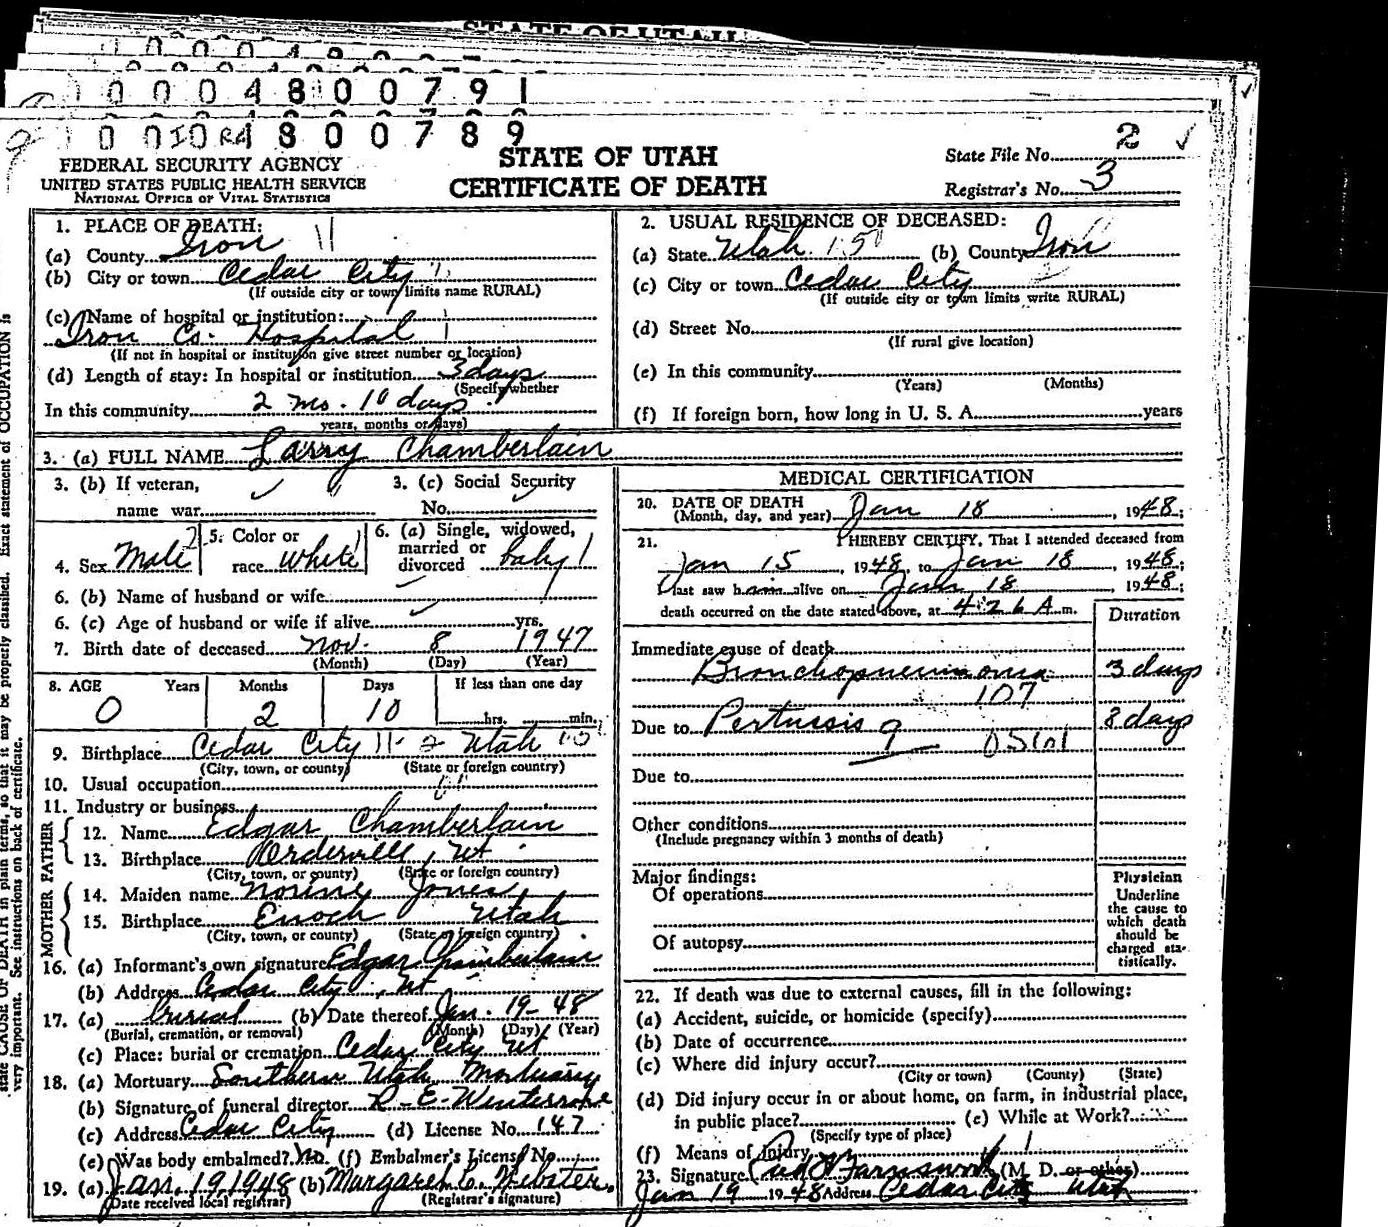 STATE OF UTAH
0 0 0 4 8 0 0 7 9 1
0 0 8 0 0 7 8 9
FEDERAL SECURITY AGENCY
UNITED STATES PUBLIC HEALTH SERVICE
NATIONAL OFFICE OF VITAL STATISTICS
STATE OF UTAH
CERTIFICATE OF DEATH
State File No. 2
Registrar's No. 3
1. PLACE OF DEATH:
(a) County Iron 11
(b) City or town Cedar City
(If outside city or town limits name RURAL)
(c) Name of hospital or institution:
Iron Co. Hospital
(If not in hospital or institution give street number or location)
(d) Length of stay: In hospital or institution 3 days
(Specify whether
In this community 2 mo. 10 days
years, months or days)
2. USUAL RESIDENCE OF DECEASED:
(a) State Utah (b) County Iron
(c) City or town Cedar City
(If outside city or town limits write RURAL)
(d) Street No.
(If rural give location)
(e) In this community
(Years) (Months)
(f) If foreign born, how long in U. S. A. years
3. (a) FULL NAME Larry Chamberlain
3. (b) If veteran, name war
3. (c) Social Security No.
4. Sex Male
5. Color or race White
6. (a) Single, widowed, married or divorced baby
6. (b) Name of husband or wife
6. (c) Age of husband or wife if alive yrs.
7. Birth date of deceased Nov. 8 1947
(Month) (Day) (Year)
8. AGE Years Months Days If less than one day
0 2 10 hrs. min.
9. Birthplace Cedar City Utah
(City, town, or county) (State or foreign country)
10. Usual occupation
11. Industry or business
FATHER
12. Name Edgar Chamberlain
13. Birthplace Orderville, Ut
(City, town, or county) (State or foreign country)
MOTHER
14. Maiden name Norene Jones
15. Birthplace Enoch Utah
(City, town, or county) (State or foreign country)
16. (a) Informant's own signature Edgar Chamberlain
(b) Address Cedar City, Ut
17. (a) burial (b) Date thereof Jan. 19-48
(Burial, cremation, or removal) (Month) (Day) (Year)
(c) Place: burial or cremation Cedar City Ut
18. (a) Mortuary Southern Utah Mortuary
(b) Signature of funeral director R-E-Winterrose
(c) Address Cedar City (d) License No. 147
(e) Was body embalmed? No. (f) Embalmer's License No.
19. (a) Jan. 19 1948 (b) Margaret C. Webster.
(Date received local registrar) (Registrar's signature)
MEDICAL CERTIFICATION
20. DATE OF DEATH
(Month, day, and year) Jan 18, 1948;
21. I HEREBY CERTIFY, That I attended deceased from
Jan 15, 1948, to Jan 18, 1948;
I last saw him alive on Jan 18 1948;
death occurred on the date stated above, at 4:26 A m.
Duration
Immediate cause of death
Bronchopneumonia 3 days
107
Due to Pertussis 8 days
9
Due to
Other conditions
(Include pregnancy within 3 months of death)
Major findings:
Of operations
Of autopsy
Physician
Underline
the cause to
which death
should be
charged sta-
tistically.
22. If death was due to external causes, fill in the following:
(a) Accident, suicide, or homicide (specify)
(b) Date of occurrence
(c) Where did injury occur?
(City or town) (County) (State)
(d) Did injury occur in or about home, on farm, in industrial place,
in public place? (e) While at Work?
(Specify type of place)
(f) Means of Injury
23. Signature Farnsworth (M. D. or other)
Jan 19 1948 Address Cedar City Utah
state CAUSE OF DEATH in plain terms, so that it may be properly classified. Exact statement of OCCUPATION is
very important. See instructions on back of certificate.